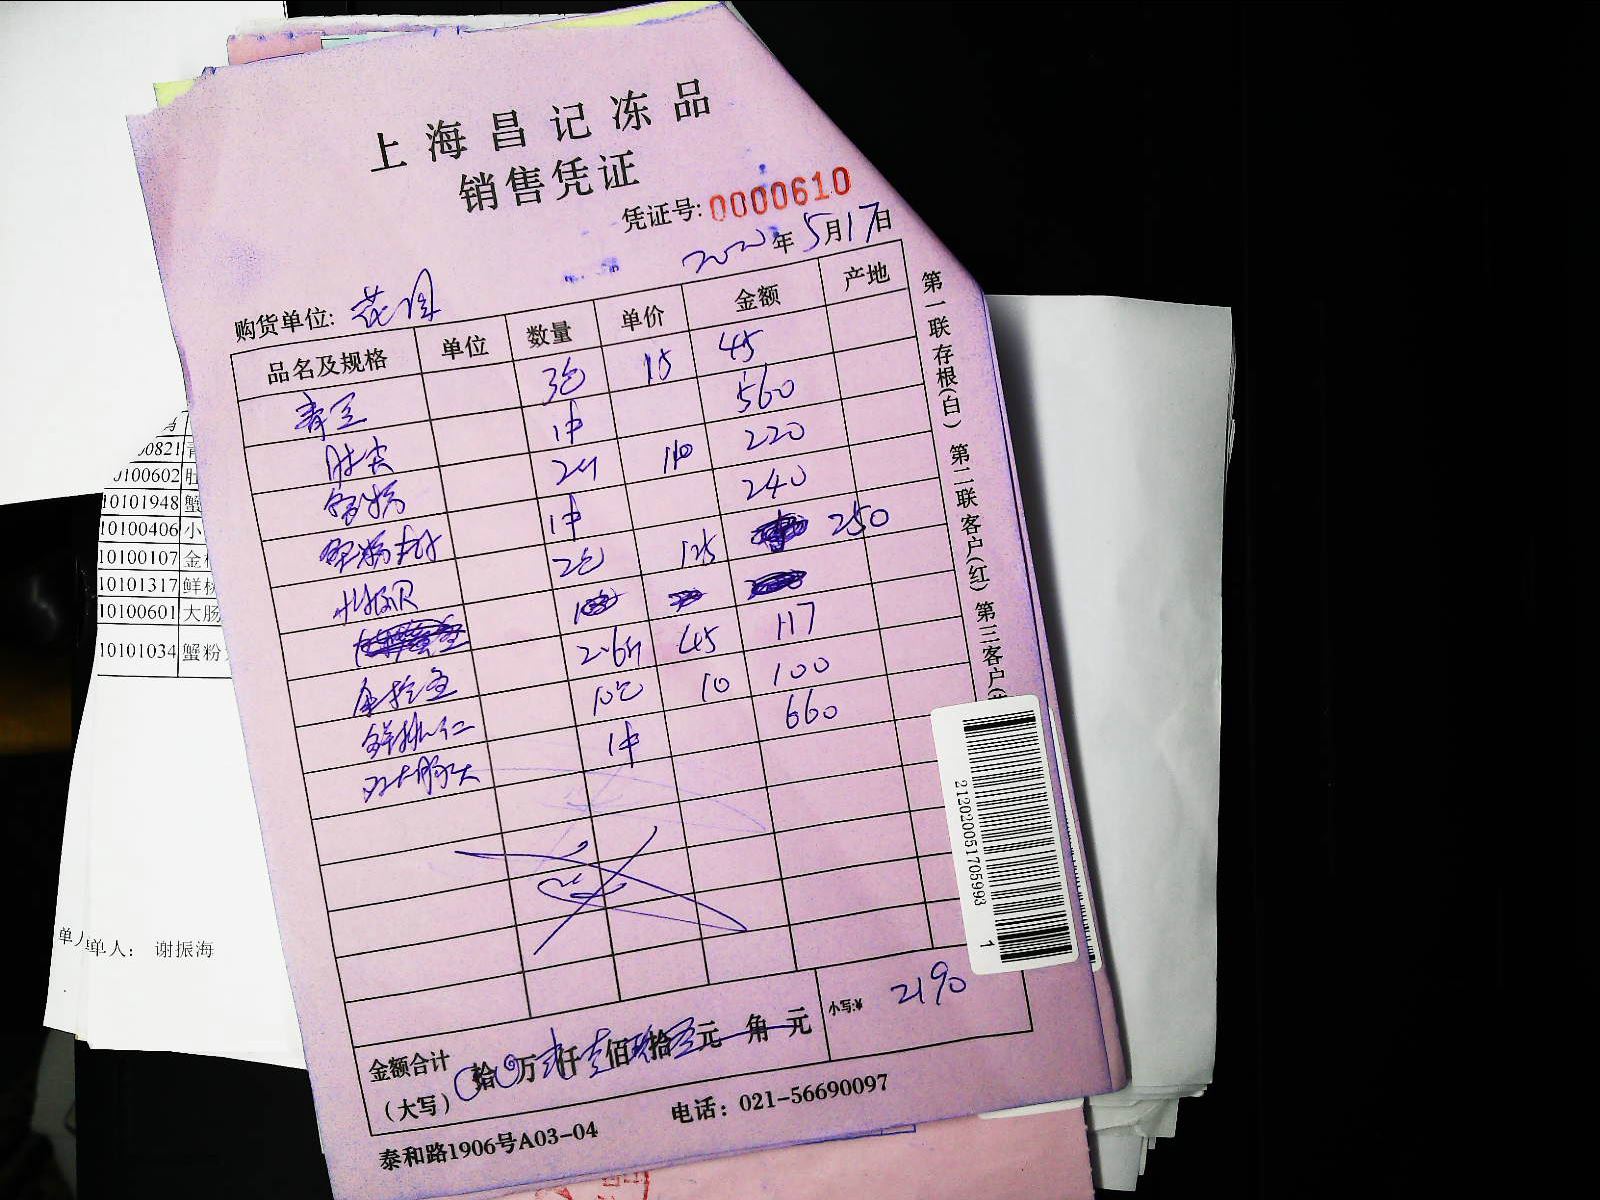 上海昌记冻品
销售凭证
凭证号: 0000610
2020年5月17日
购货单位:
品名及规格 单位 数量 单价 金额 产地
青豆 3包 15 45
肚尖 1件 560
蟹粉 2斤 110 220
1件 240
2包 125 250
金枪鱼 2.6斤 45 117
鲜桃仁 10包 10 100
大肠头 1件 660
金额合计
(大写) 拾 万 仟 佰 拾 元 角 元 小写:¥ 2190
泰和路1906号A03-04 电话: 021-56690097
第一联存根(白) 第二联客户(红) 第三客户(
212020051705993 1
0821 青
100602 肚
10101948 蟹
10100406 小
10100107 金
10101317 鲜桃
10100601 大肠
10101034 蟹粉
单人: 谢振海